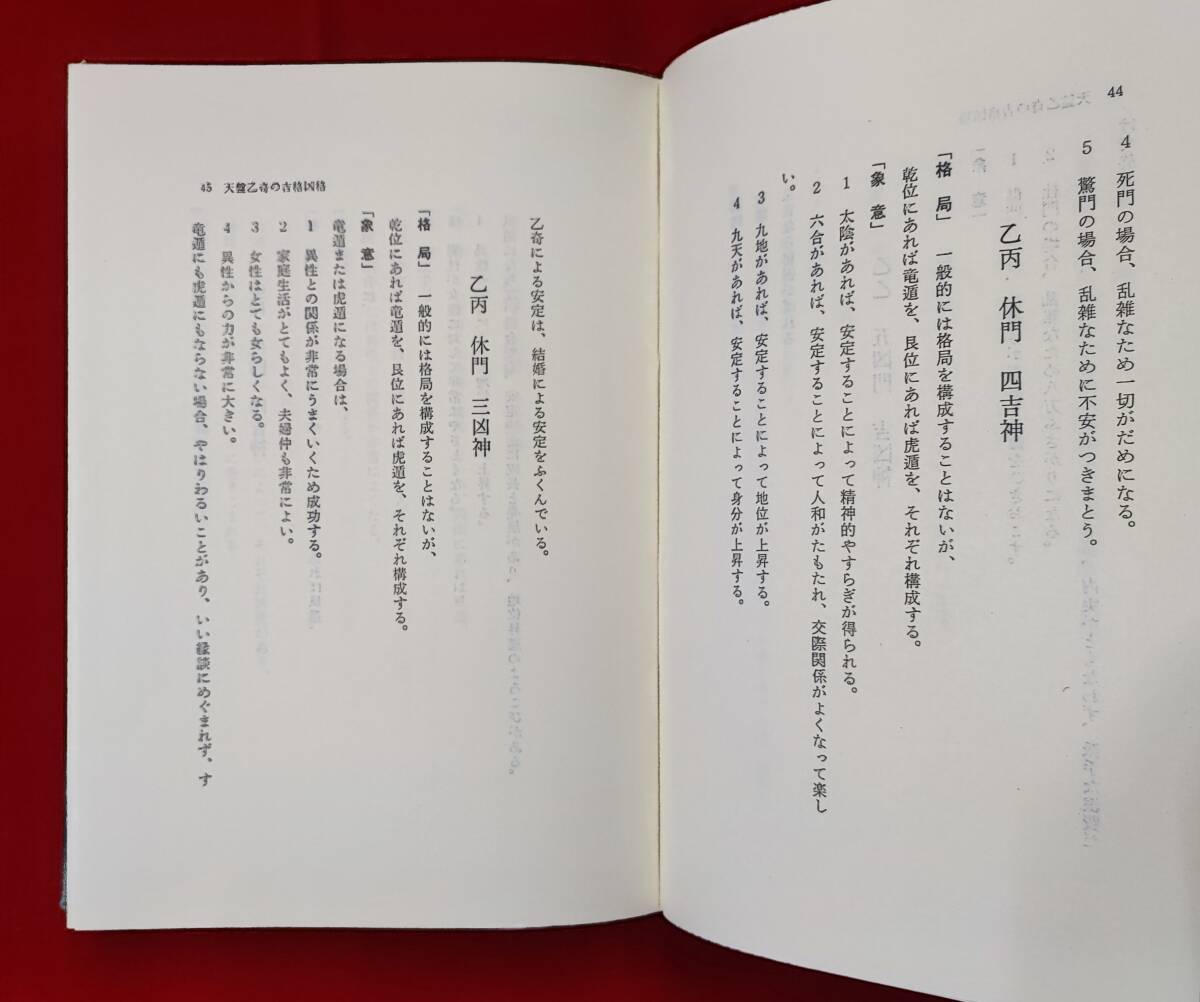 44
4　死門の場合、乱雑なため一切がだめになる。
5　驚門の場合、乱雑なために不安がつきまとう。
乙丙　休門　四吉神
「格　局」　一般的には格局を構成することはないが、
乾位にあれば竜遁を、艮位にあれば虎遁を、それぞれ構成する。
「象　意」
1　太陰があれば、安定することによって精神的やすらぎが得られる。
2　六合があれば、安定することによって人和がたもたれ、交際関係がよくなって楽し
い。
3　九地があれば、安定することによって地位が上昇する。
4　九天があれば、安定することによって身分が上昇する。
45　天盤乙奇の吉格凶格
乙奇による安定は、結婚による安定をふくんでいる。
乙丙　休門　三凶神
「格　局」　一般的には格局を構成することはないが、
乾位にあれば竜遁を、艮位にあれば虎遁を、それぞれ構成する。
「象　意」
竜遁または虎遁になる場合は、
1　異性との関係が非常にうまくいくため成功する。
2　家庭生活がとてもよく、夫婦仲も非常によい。
3　女性はとても女らしくなる。
4　異性からの力が非常に大きい。
竜遁にも虎遁にもならない場合、やはりわるいことがあり、いい縁談にめぐまれず、す